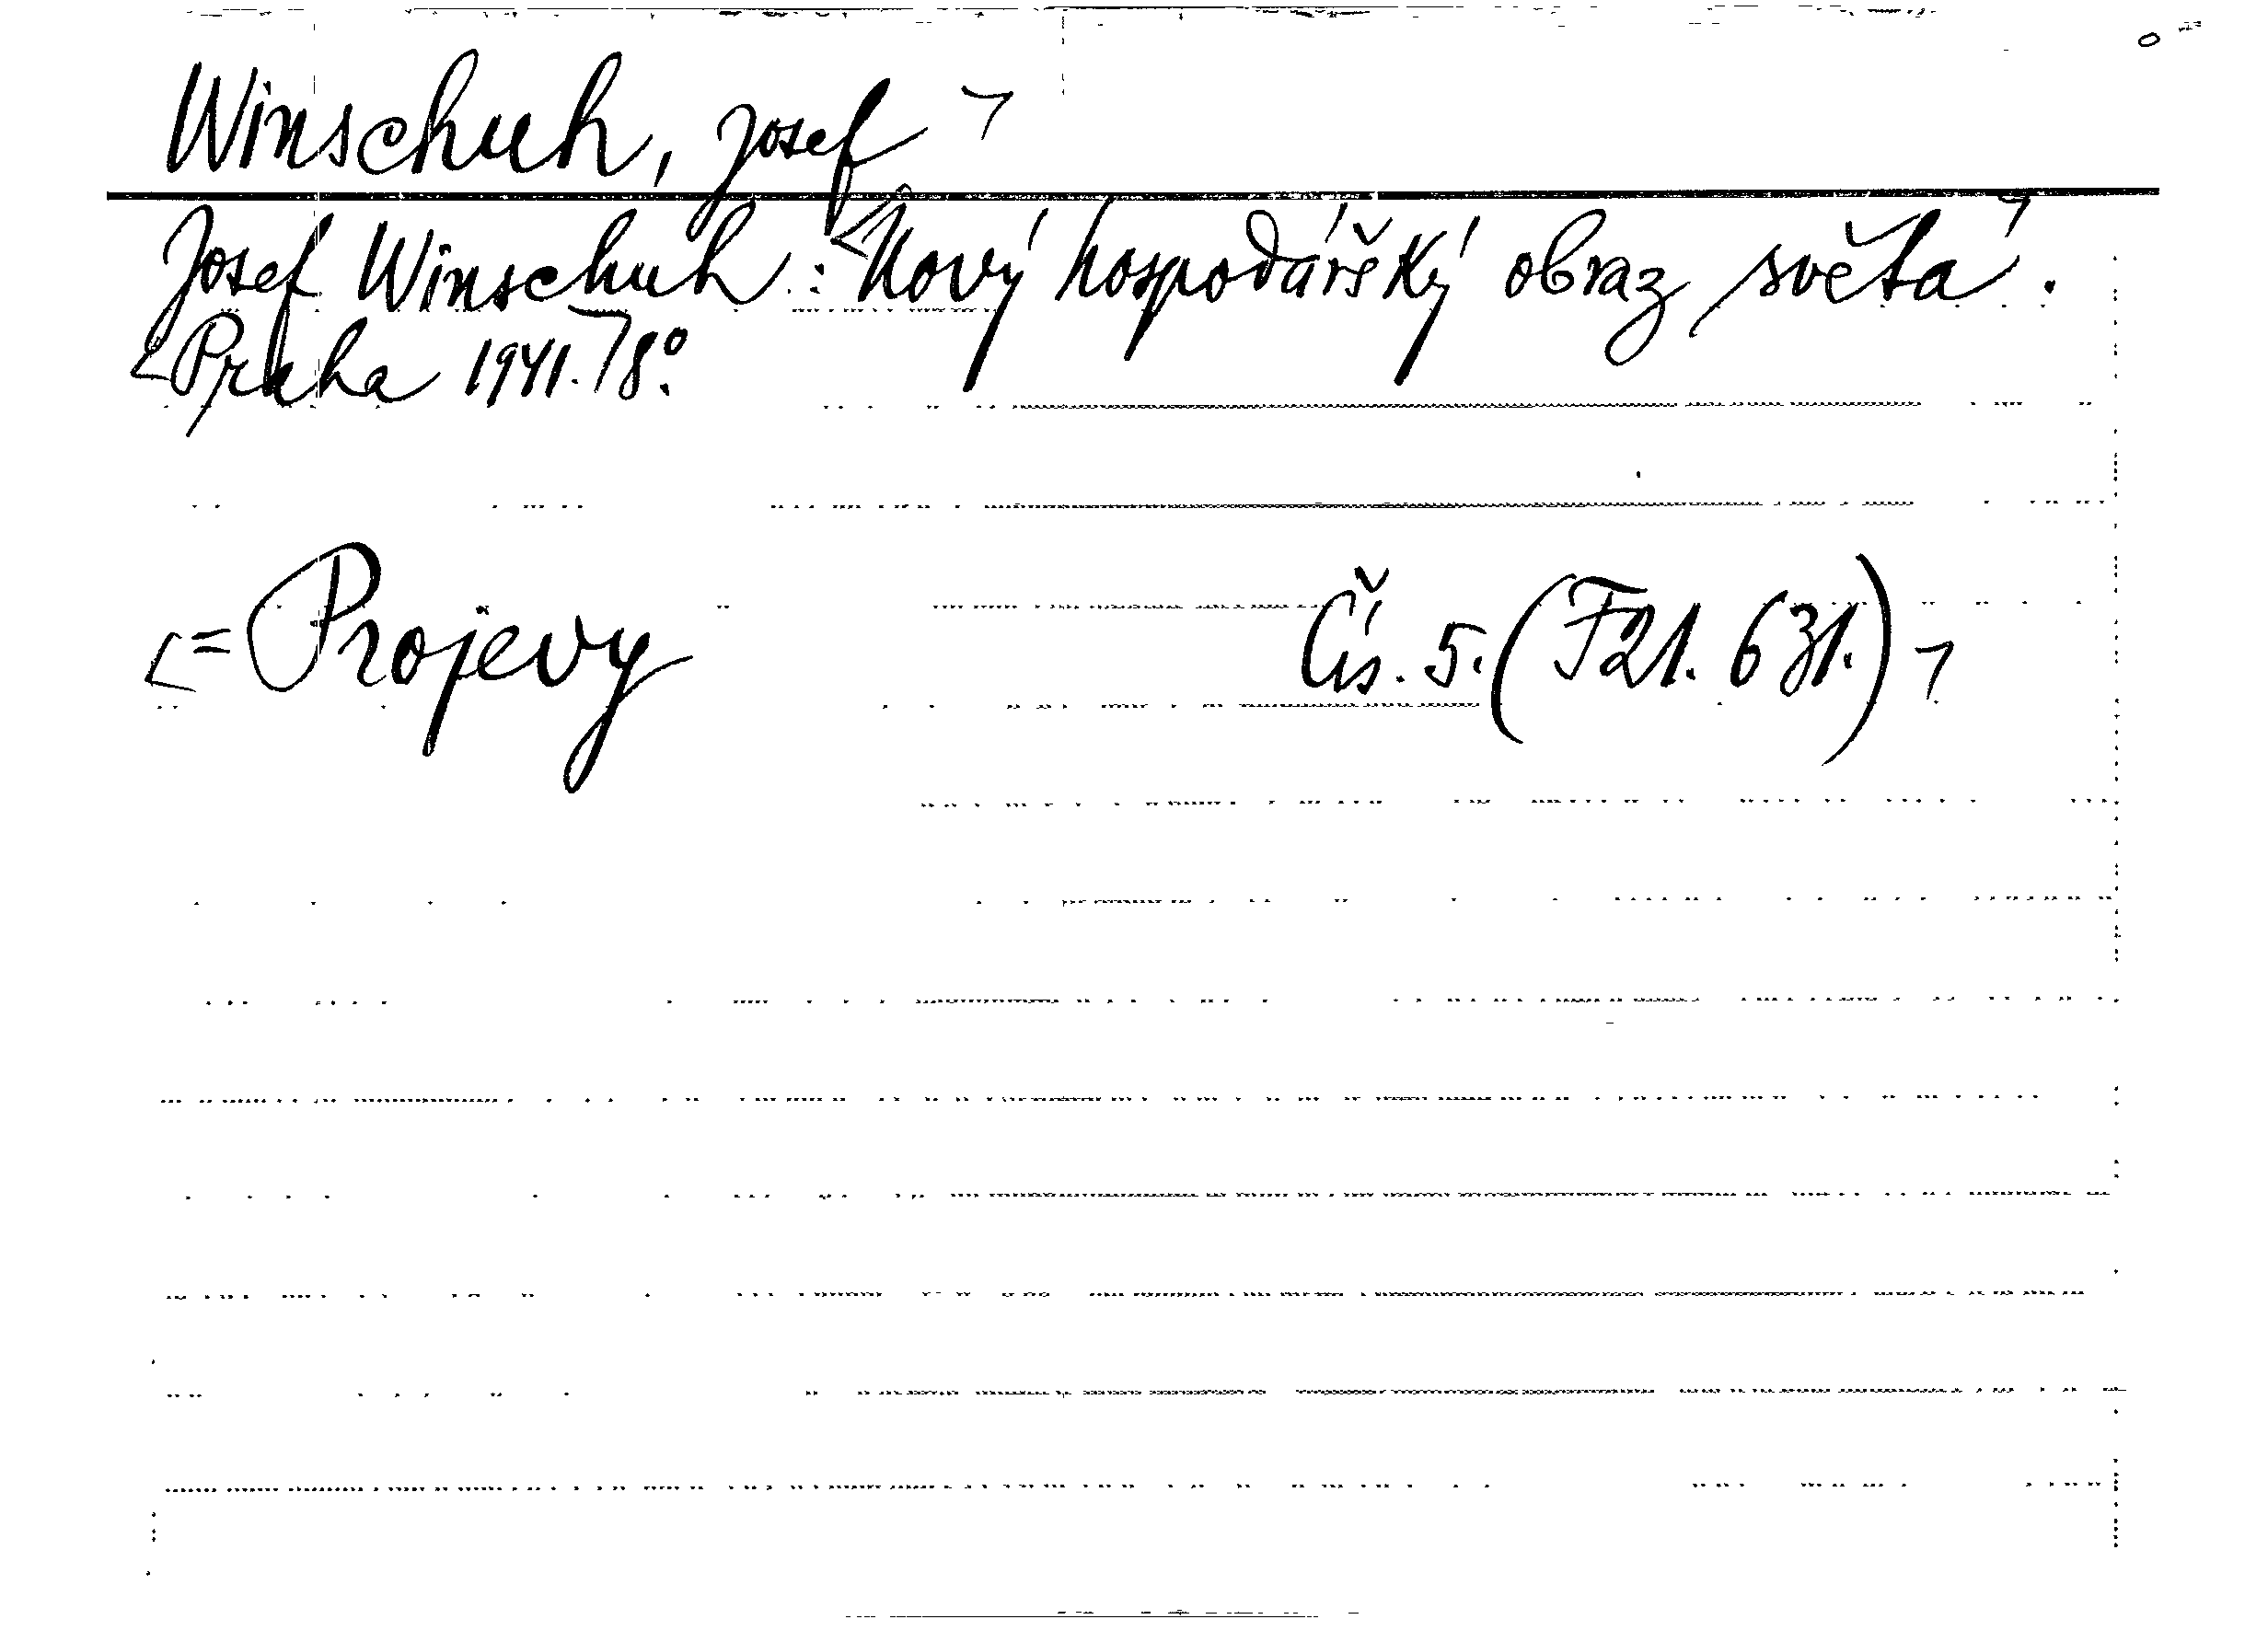 Winschuh, Josef
Josef Winschuh: Nový hospodářský obraz světa.
Praha 1941. 8°.
= Projevy Čís. 5. (F21. 631.)